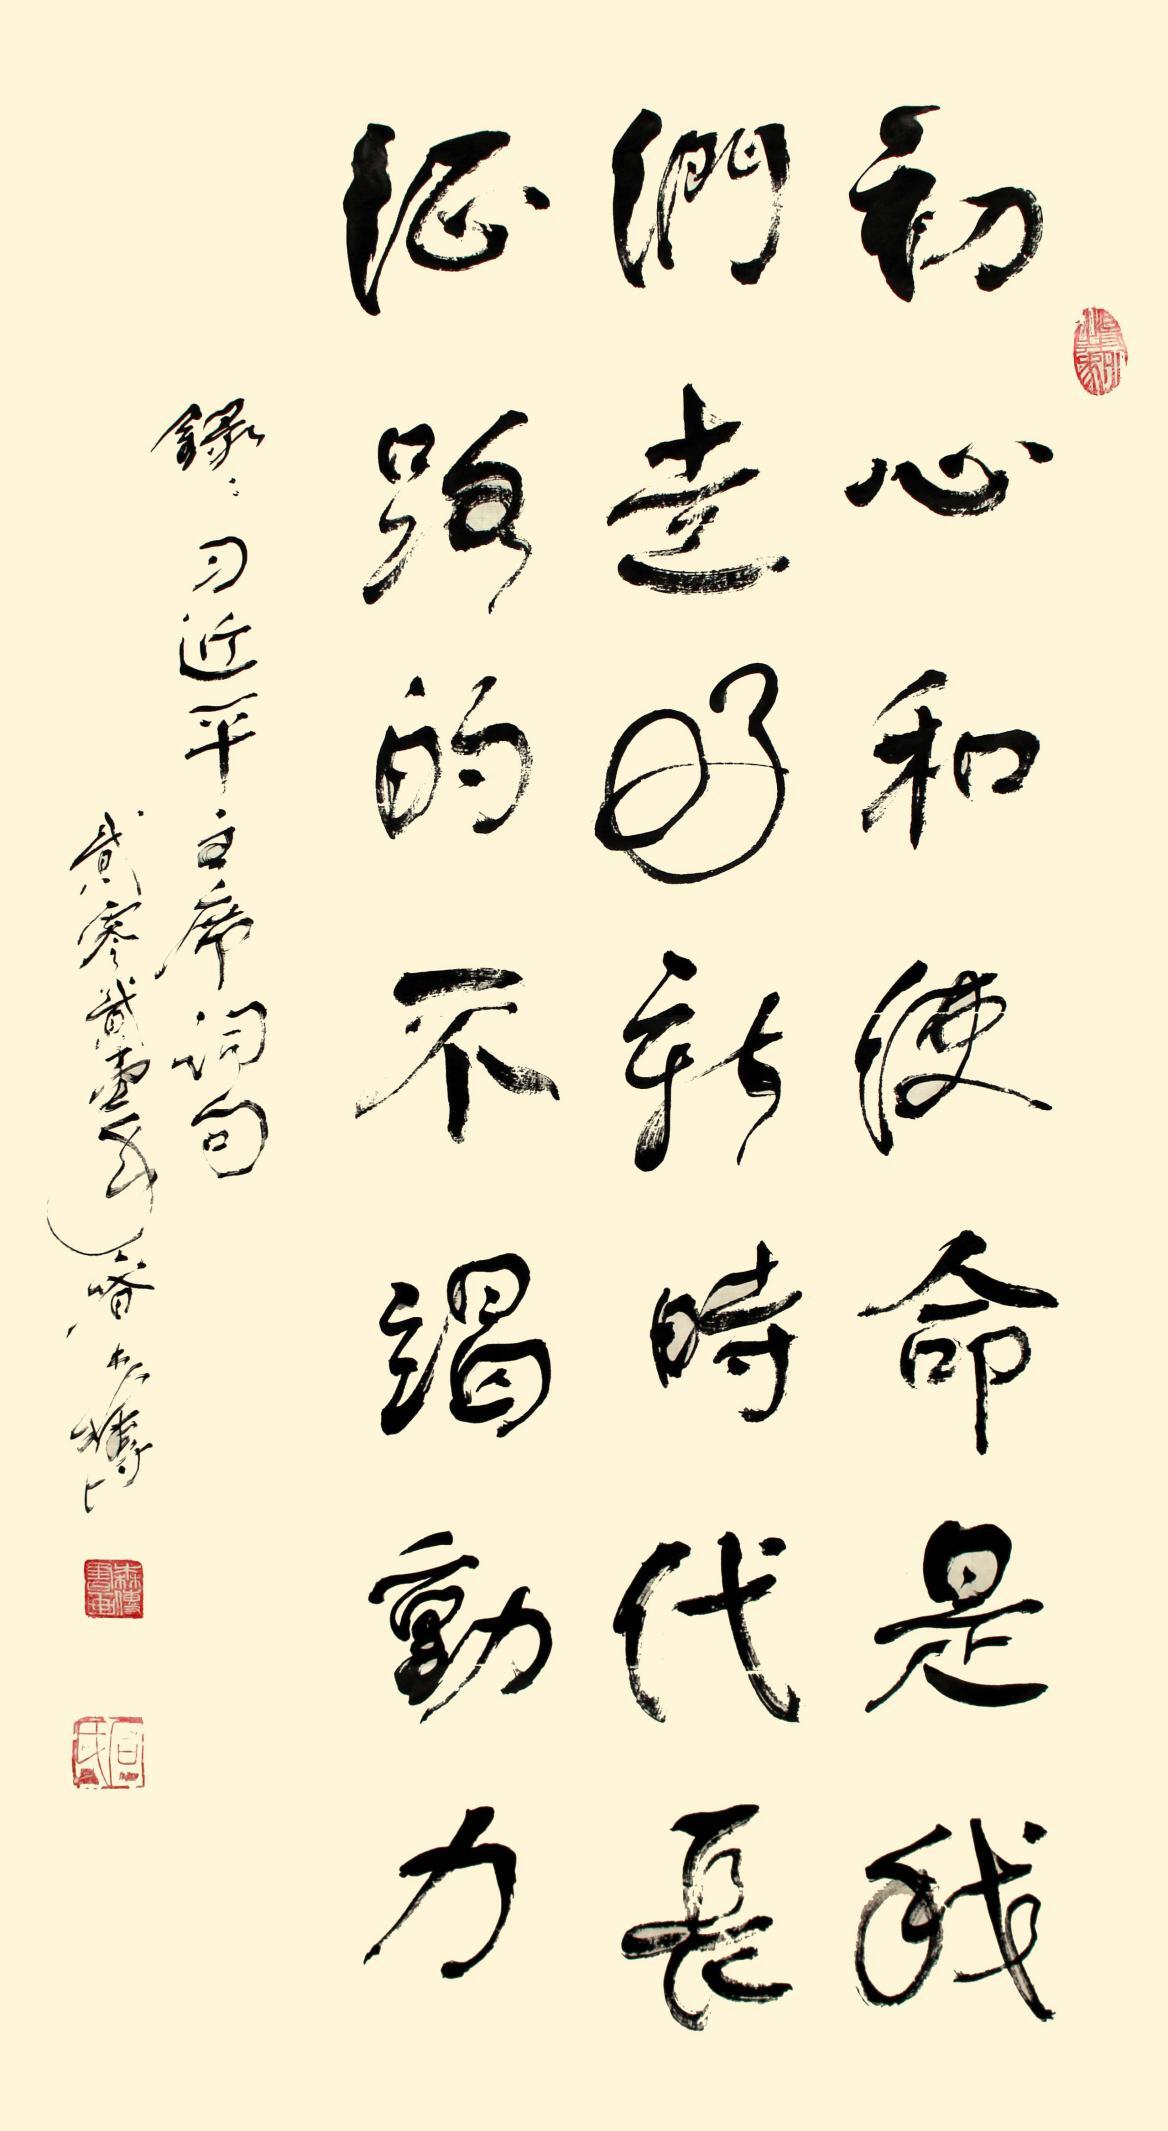 初心和使命是我
們走好新時代長
征路的不竭動力
錄 习近平主席詞句
貳零貳壹年春